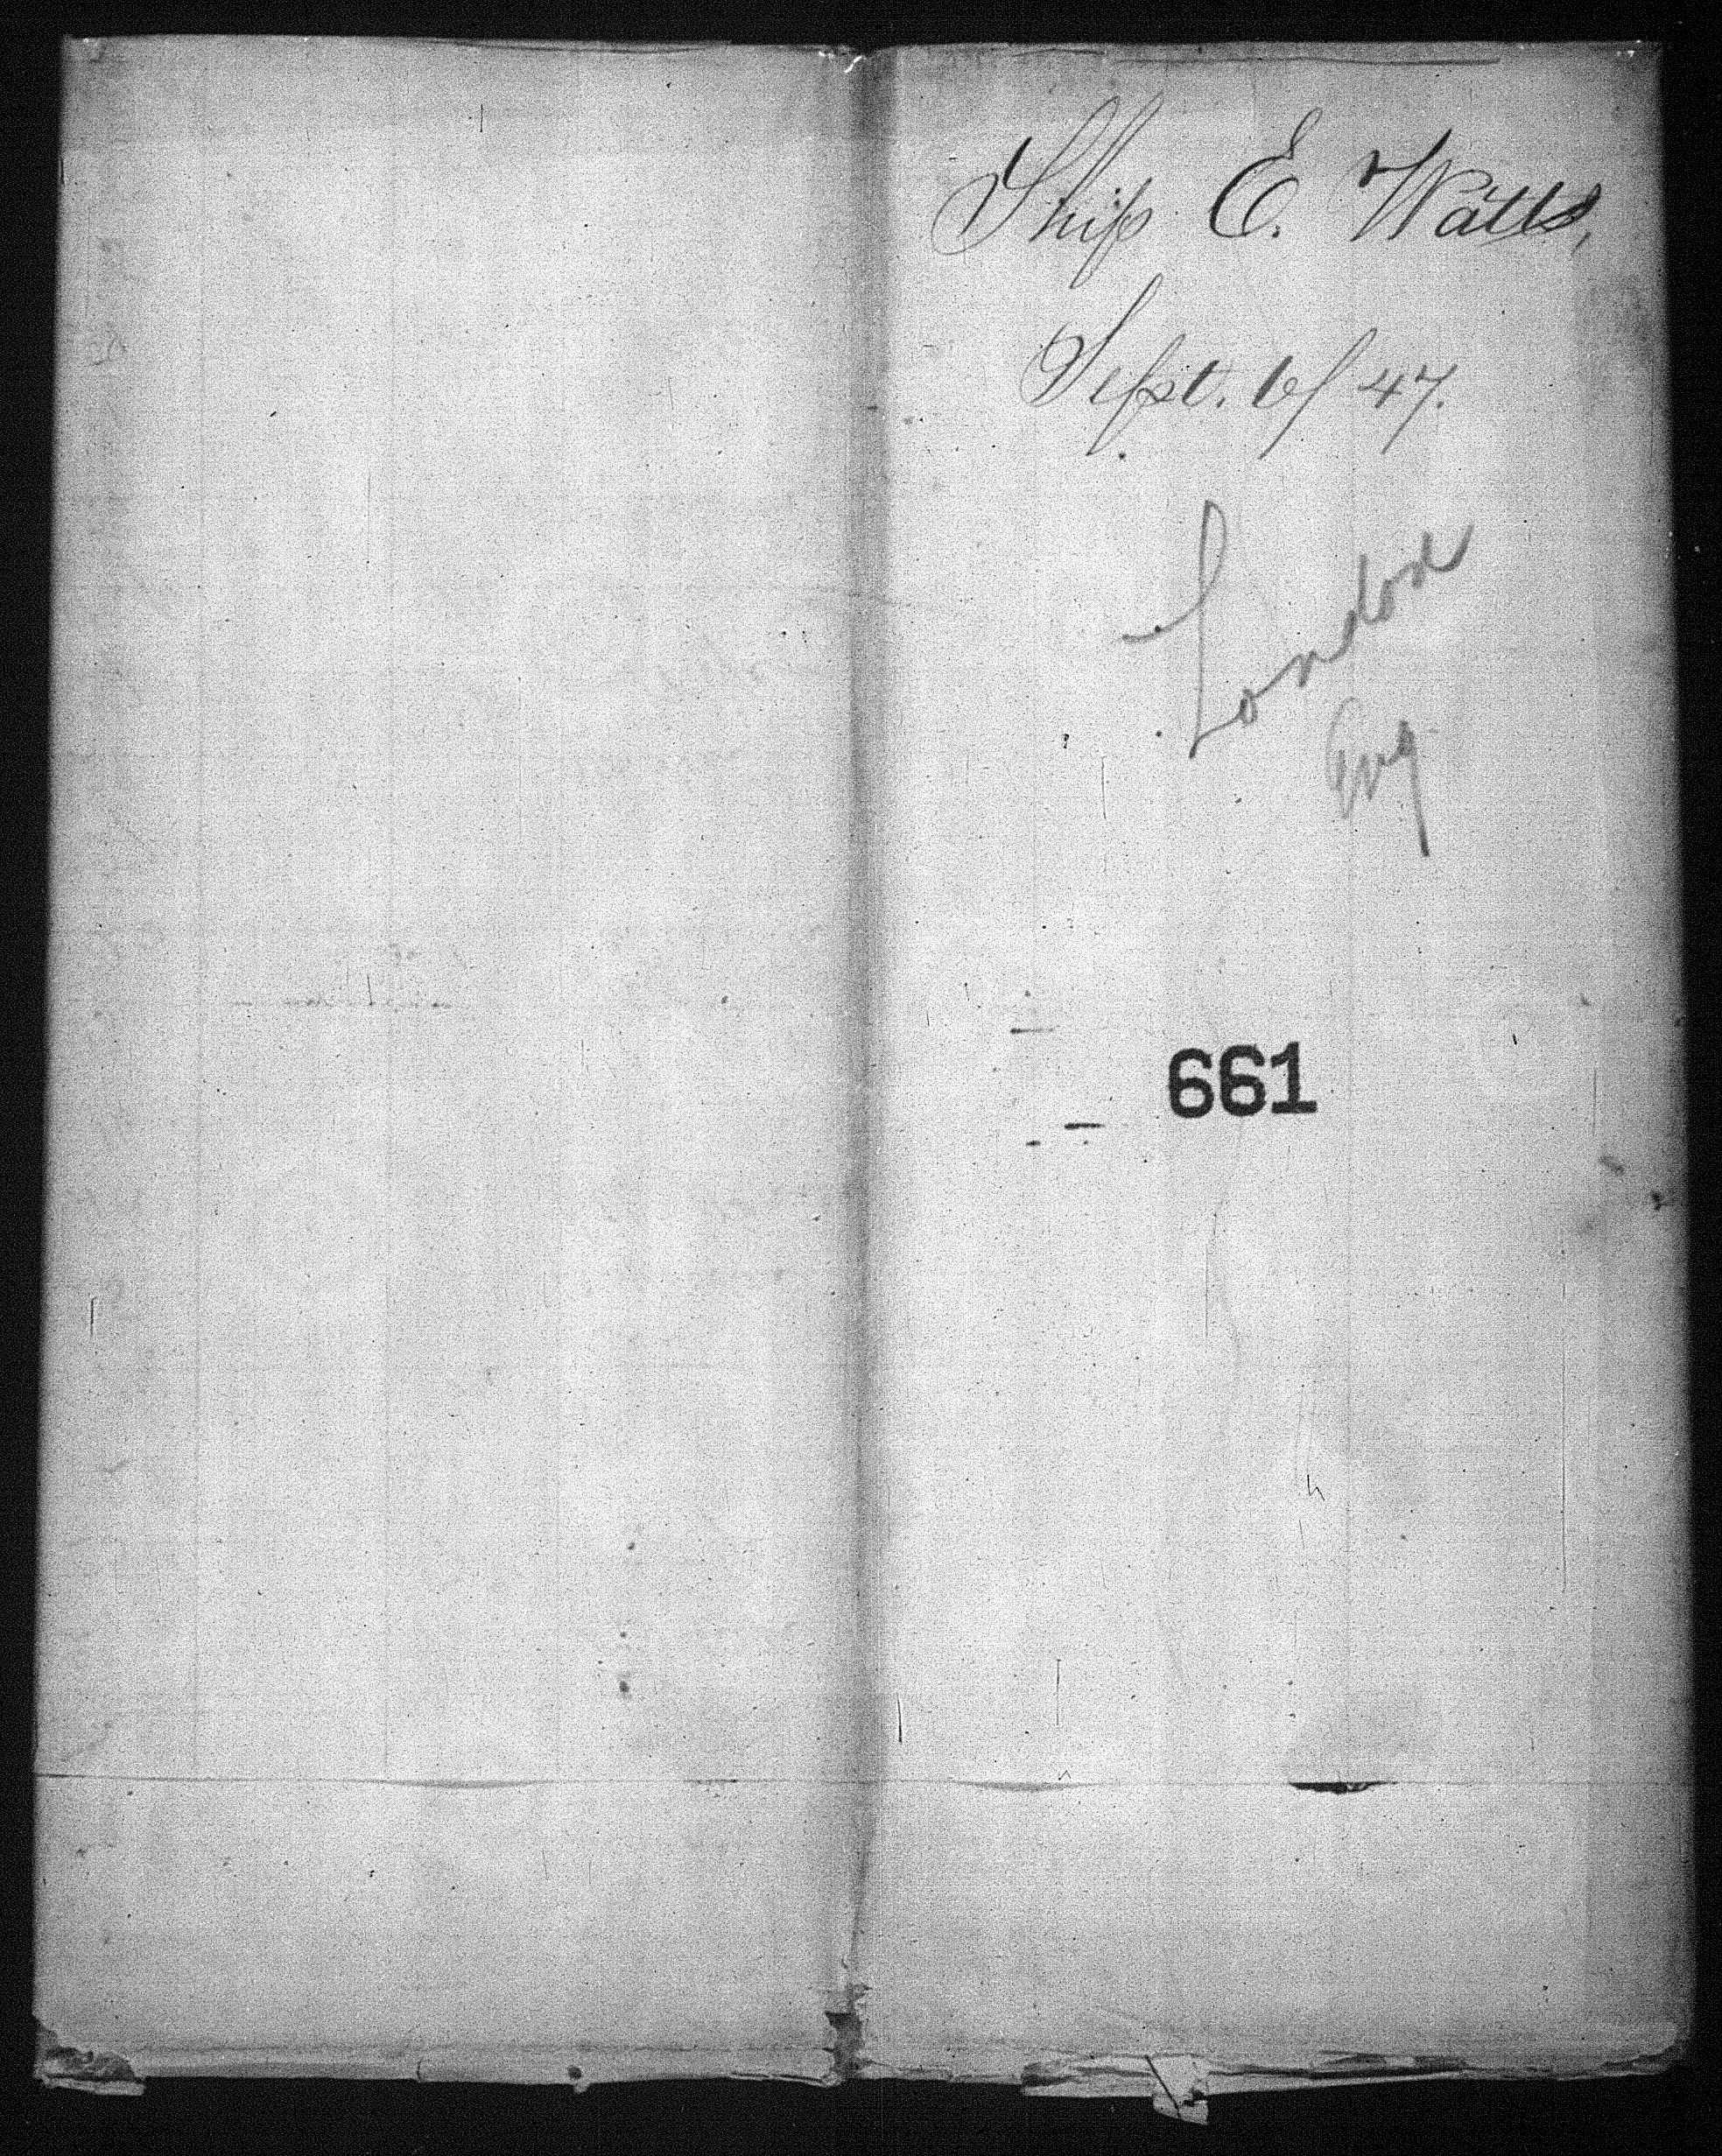 Ship E. Watts,
Sept. 6/47.
London
Eng
661